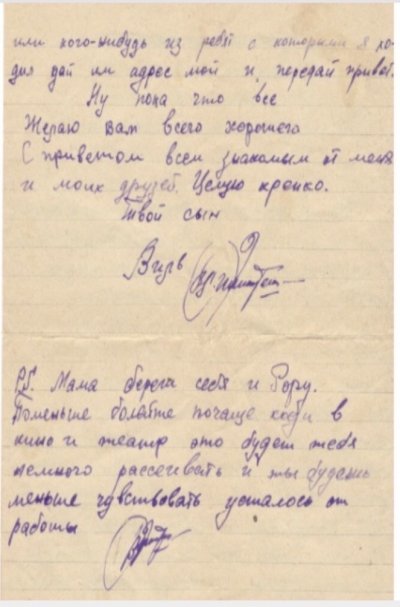 или кого-нибудь из ребят с которыми я хо-
дил дай им адрес мой и передай привет.
Ну пока что все
Желаю вам всего хорошего
С приветом всем знакомым от меня
и моих друзей. Целую крепко.
Твой сын
P.S. Мама береги себя и
Поменьше болейте почаще ходи в
кино и театр это будет тебя
немного рассеивать и ты будешь
меньше чувствовать усталось от
работы